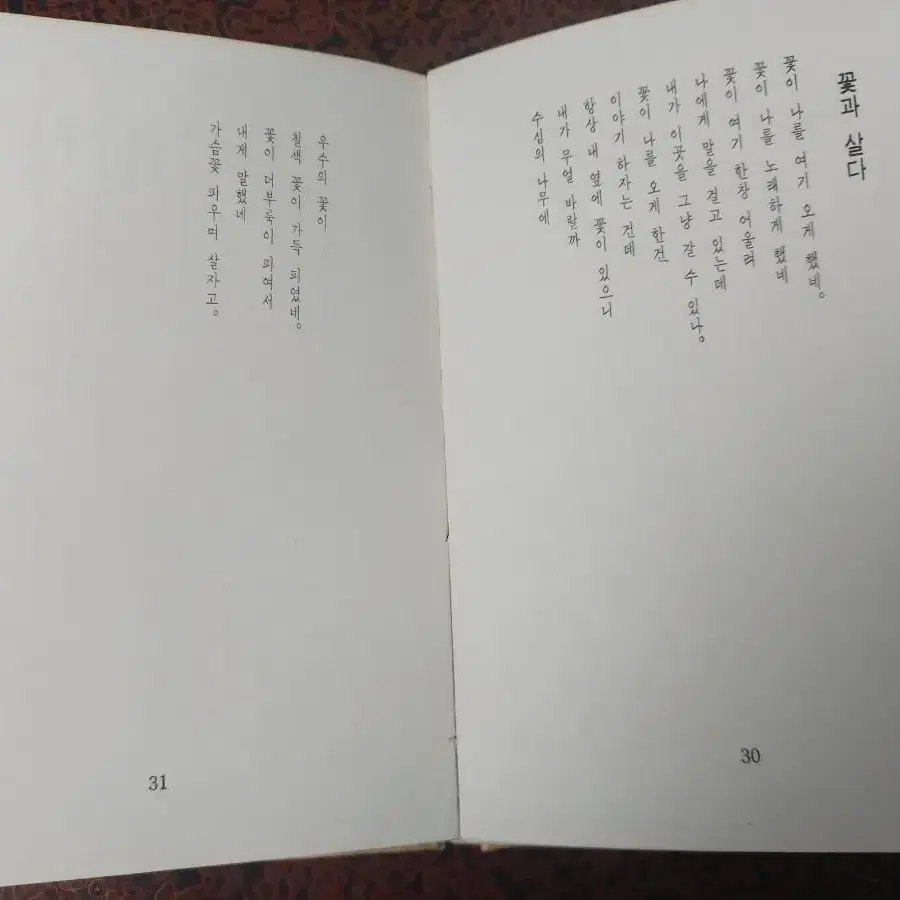 꽃과 살다
꽃이 나를 여기 오게 했네。
꽃이 나를 노래하게 했네
꽃이 여기 한창 어울려
나에게 말을 걸고 있는데
내가 이곳을 그냥 갈 수 있나。
꽃이 나를 오게 한건
이야기 하자는 건데
항상 내 옆에 꽃이 있으니
내가 무얼 바랄까
수심의 나무에
30
우수의 꽃이
칠색 꽃이 가득 피였네。
꽃이 더부룩이 피여서
내게 말했네
가슴꽃 피우며 살자고。
31